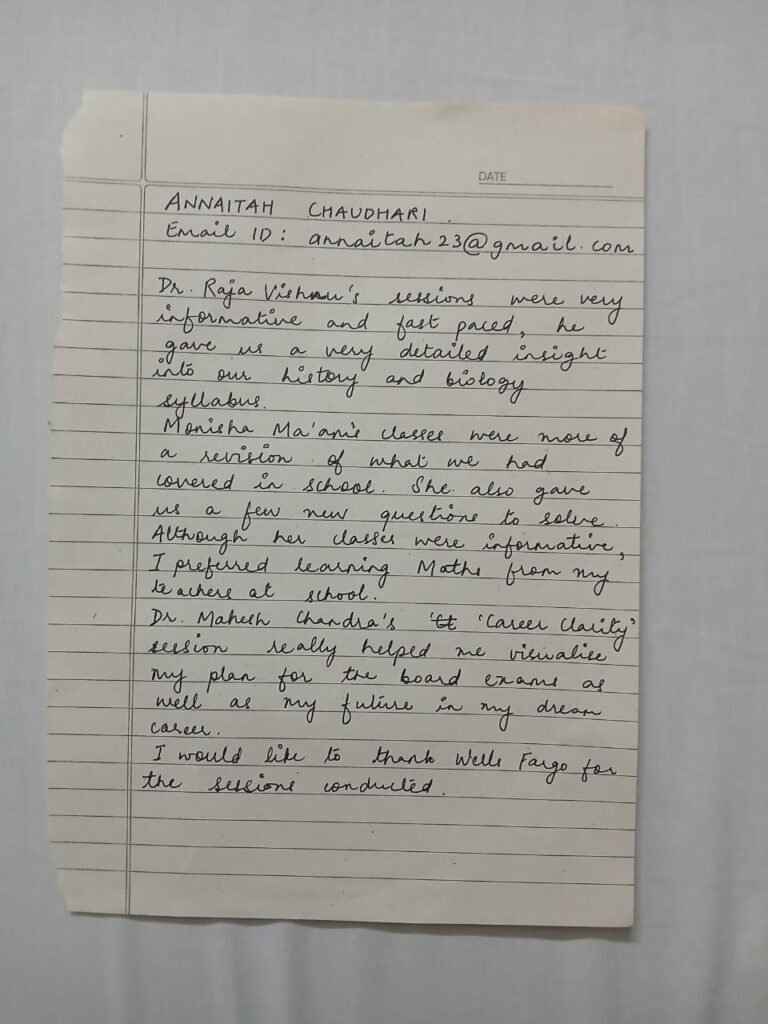 DATE
ANNAITAH CHAUDHARI.
Email ID: annaitah23@gmail.com
Dr. Raja Vishnu's sessions were very
informative and fast paced, he
gave us a very detailed insight
into our history and biology
syllabus.
Monisha Ma'am's classes were more of
a revision of what we had
covered in school. She also gave
us a few new questions to solve.
Although her classes were informative,
I preferred learning Maths from my
teachers at school.
Dr. Mahesh Chandra's 'Career Clarity'
session really helped me visualise
my plan for the board exams as
well as my future in my dream
career.
I would like to thank Wells Fargo for
the sessions conducted.